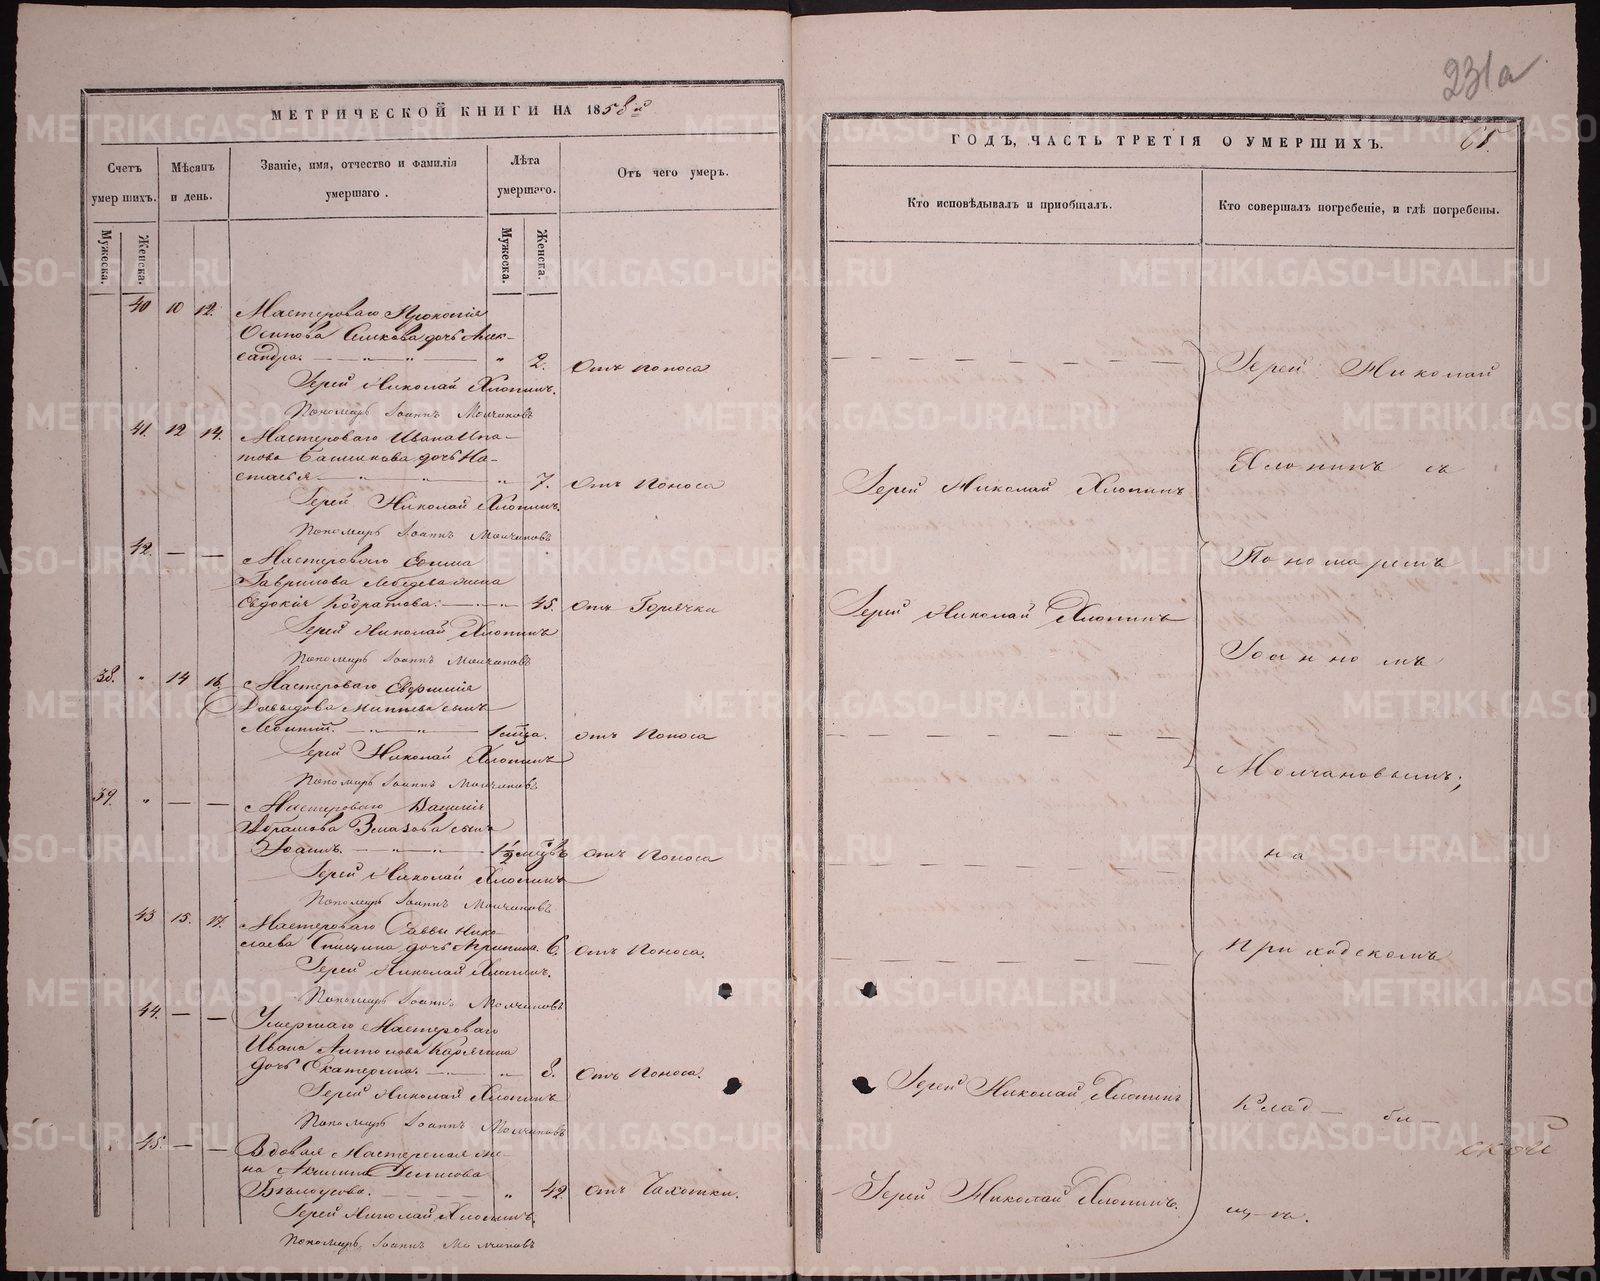 231а
МЕТРИЧЕСКОЙ КНИГИ НА 1858й
Счетъ умер шихъ.
Мѣсяцъ и день.
Званіе, имя, отчество и фамилія умершаго.
Лѣта умершаго.
Отъ чего умеръ.
Мужеска.
Женска.
Мужеска.
Женска.
40 10 12. Мастероваго Прокопія
Осипова дочь Алек-
сандра. — „ — „ — „ 2. Отъ поноса
Іерей Николай Хлопинъ.
Пономарь Іоаннъ Молчановъ
41. 12 14. Мастероваго Ивана Ипа-
това дочь На-
стасья — „ — „ — „ 7. Отъ Поноса
Іерей Николай Хлопинъ.
Пономарь Іоаннъ Молчановъ
42. — — Мастероваго Ефима
Гаврилова Лебедева жена
Евдокія Кодратова. — „ — „ 45. Отъ Горячки
Іерей Николай Хлопинъ
Пономарь Іоаннъ Молчановъ
38. „ 14 16. Мастероваго
Давыдова сынъ
Леонтій. — „ — „ — 1 отъ Поноса
Іерей Николай Хлопинъ
Пономарь Іоаннъ Молчановъ
39. „ — — Мастероваго Василія
Абрамова сынъ
Іоаннъ. — „ — „ — 1½ отъ Поноса
Іерей Николай Хлопинъ
Пономарь Іоаннъ Молчановъ
43 15. 17. Мастероваго Саввы Нико-
лаева Спицина дочь 6. Отъ Поноса.
Іерей Николай Хлопинъ.
Пономарь Іоаннъ Молчановъ
44. — — Умершаго Мастероваго
Ивана
дочь Екатерина. — „ — „ 8. Отъ Поноса.
Іерей Николай Хлопинъ
Пономарь Іоаннъ Молчановъ
45. — — Вдовая Мастерская же-
на Денисова
Бѣлоусова. — „ 42. отъ Чахотки.
Іерей Николай Хлопинъ.
Пономарь Іоаннъ Молчановъ
ГОДЪ, ЧАСТЬ ТРЕТІЯ О УМЕРШИХЪ.
65.
Кто исповѣдывалъ и пріобщалъ.
Кто совершалъ погребеніе, и гдѣ погребены.
Іерей Николай Хлопинъ
Іерей Николай Хлопинъ
Іерей Николай Хлопинъ
Іерей Николай Хлопинъ.
Іерей Николай
Хлопинъ съ
Пономаремъ
Іоанномъ
Молчановымъ;
на
приходскомъ
клад — би —
щѣ.
METRIKI.GASO-URAL.RU